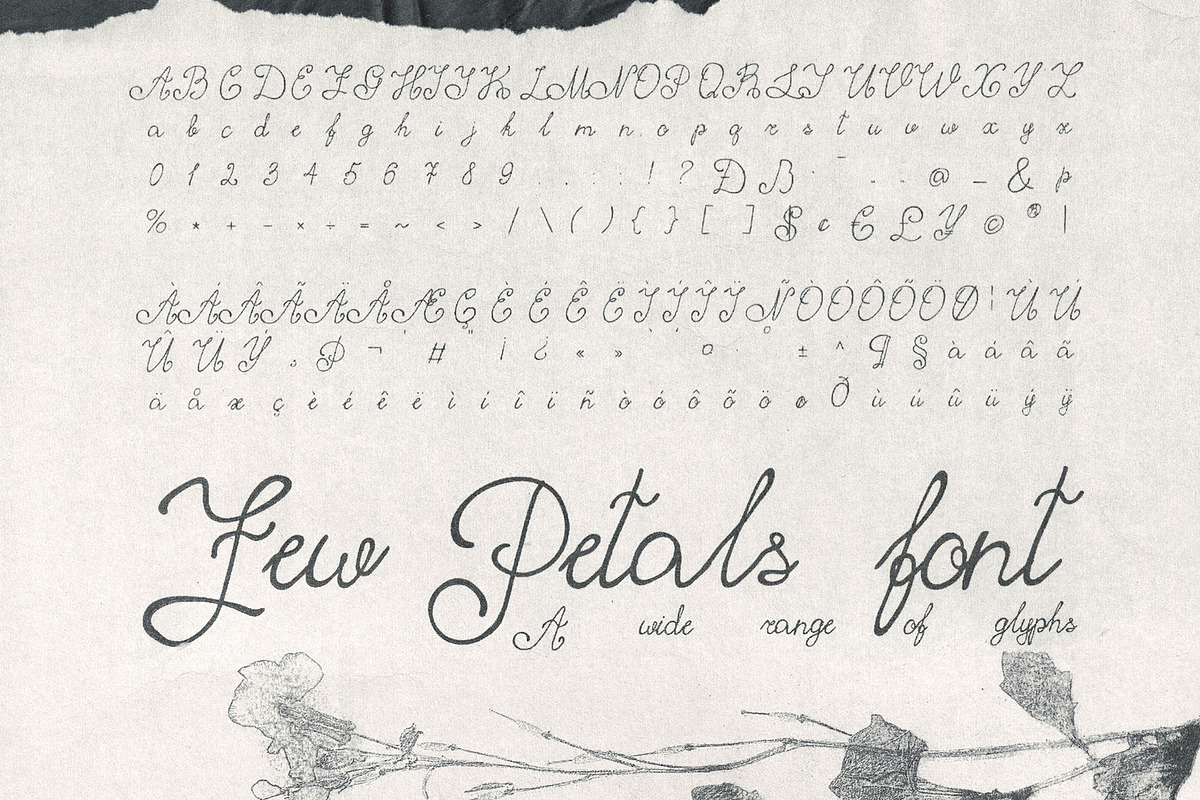 A B C D E F G H I J K L M N O P Q R S T U V W X Y Z
a b c d e f g h i j k l m n o p q r s t u v w x y z
0 1 2 3 4 5 6 7 8 9 . , : ; ! ? Đ B - . . @ _ & p
% * + − × ÷ = ~ < > / \ ( ) { } [ ] $ ¢ € £ ¥ © ® |
À Á Â Ã Ä Å Æ Ç È É Ê Ë Ì Í Î Ï Ñ Ò Ó Ô Õ Ö Ø ¦ Ù Ú
Û Ü Ý ¬ # ¡ ¿ « » ¤ ± ^ ¶ § à á â ã
ä å æ ç è é ê ë ì í î ï ñ ò ó ô õ ö ø ù ú û ü ý ÿ
Few Petals font
A wide range of glyphs